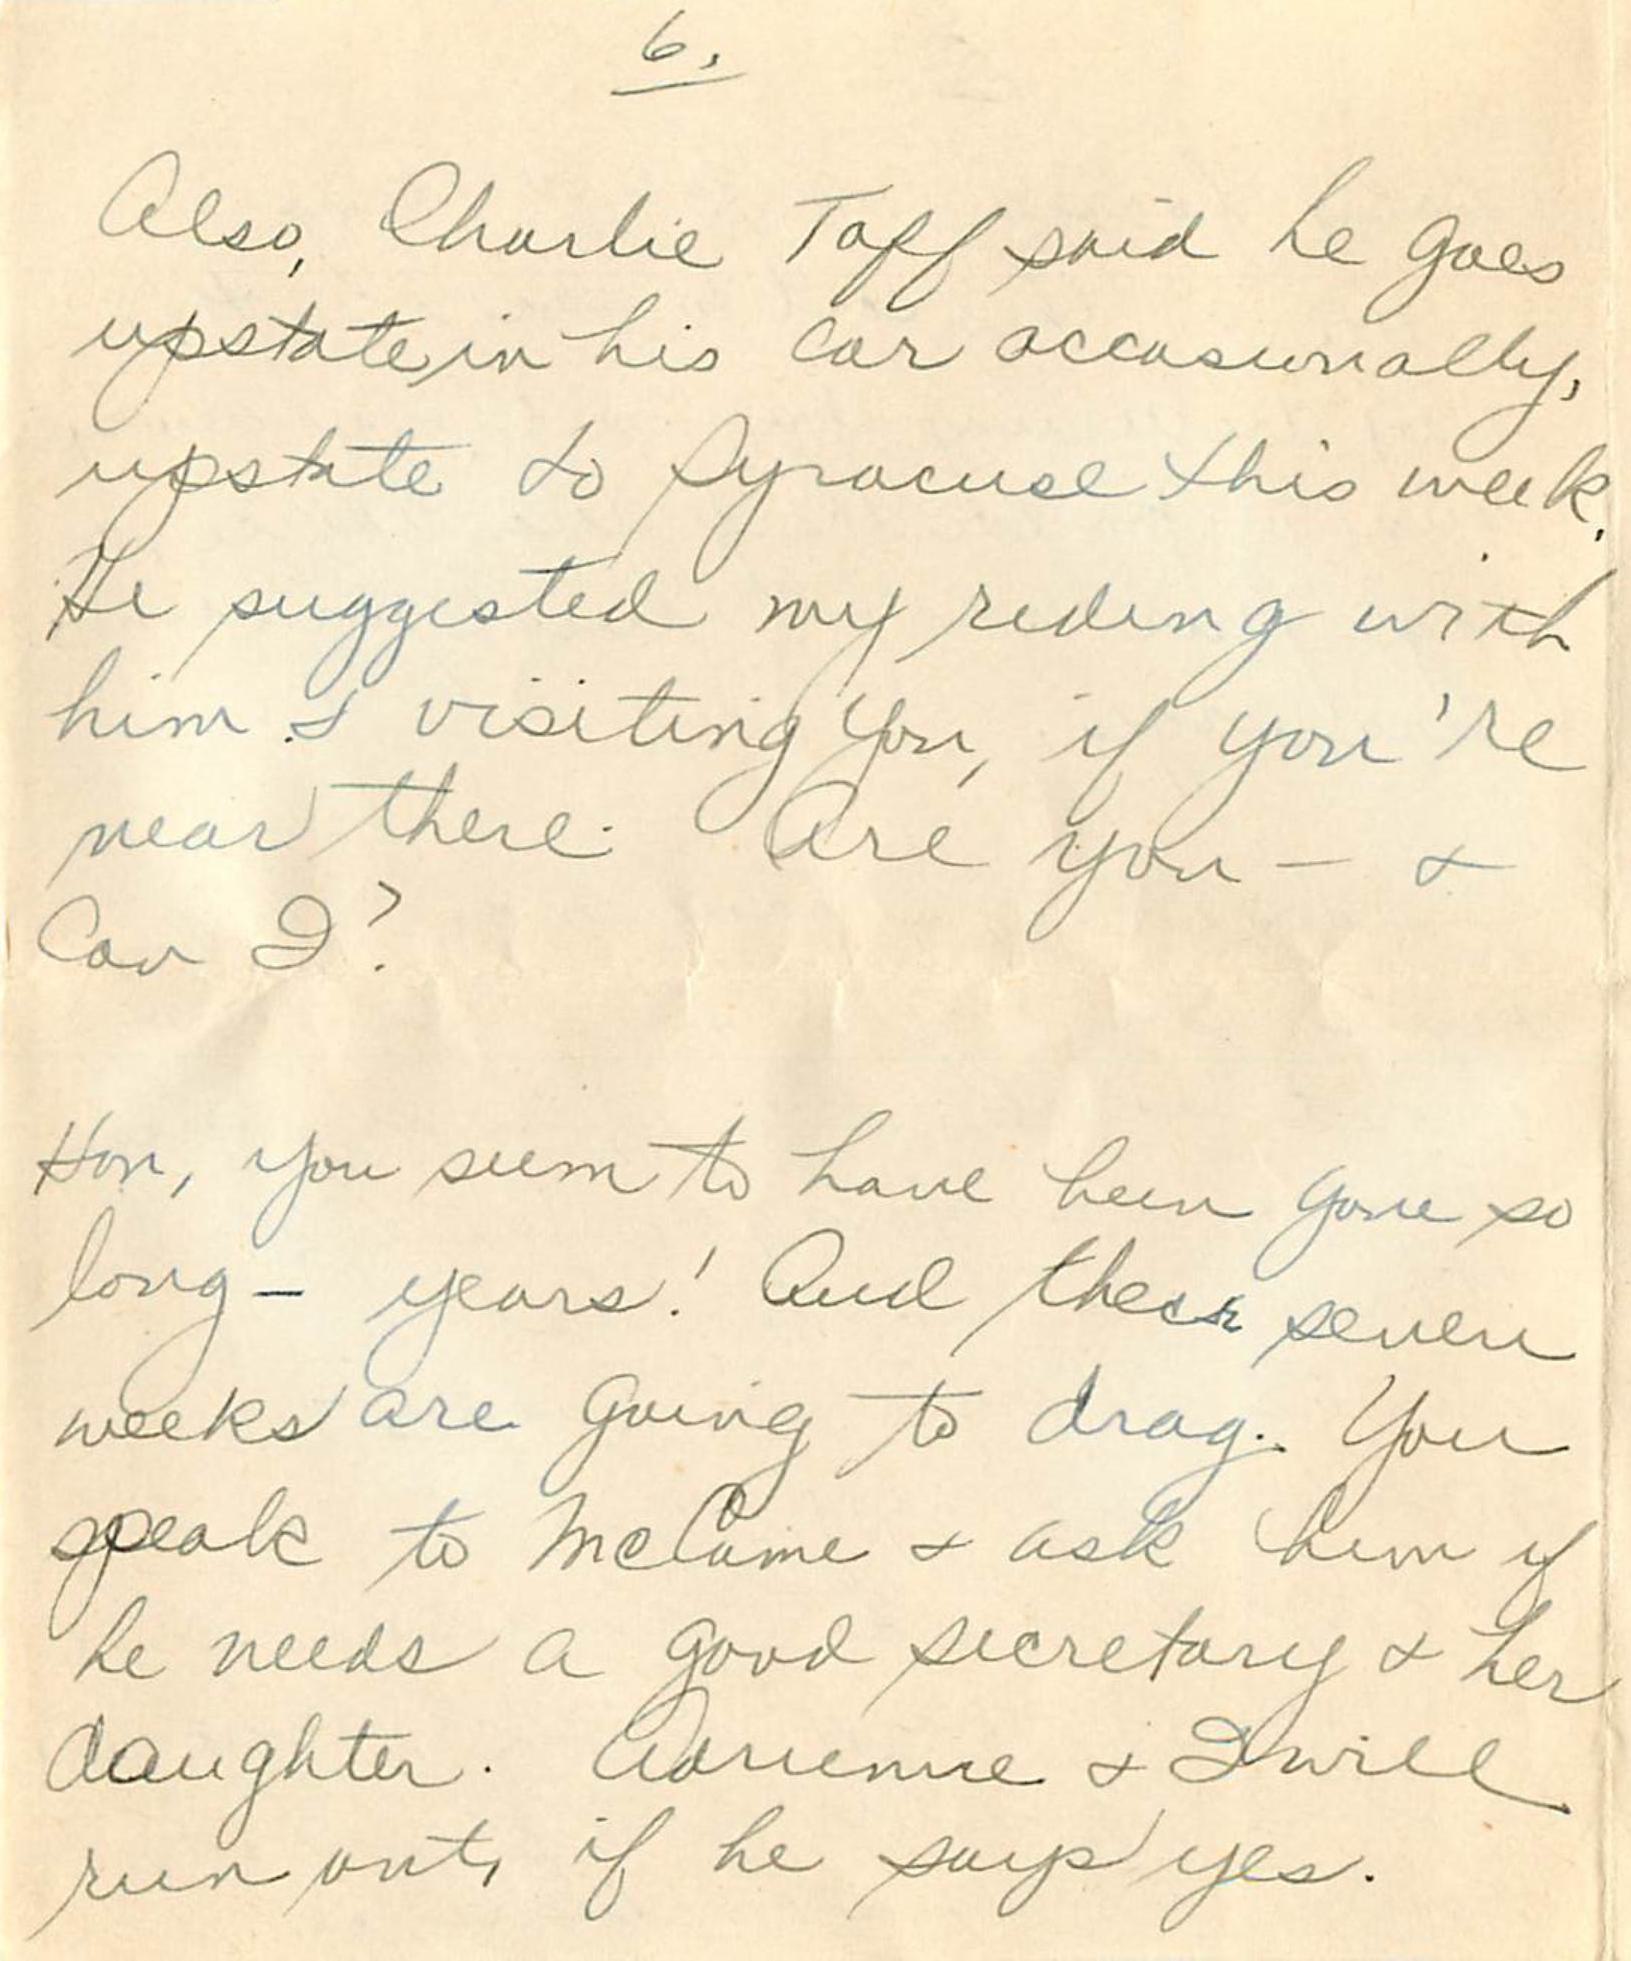 6.
Also, Charlie Taff said he goes
upstate in his car occasionally,
upstate to Syracuse this week.
He suggested my riding with
him & visiting you, if you're
near there. Are you – &
Can I?
Hon, you seem to have been gone so
long – years! And these seven
weeks are going to drag. You
speak to McCume & ask him if
he needs a good secretary & her
daughter. Adrienne & I will
run out, if he says yes.